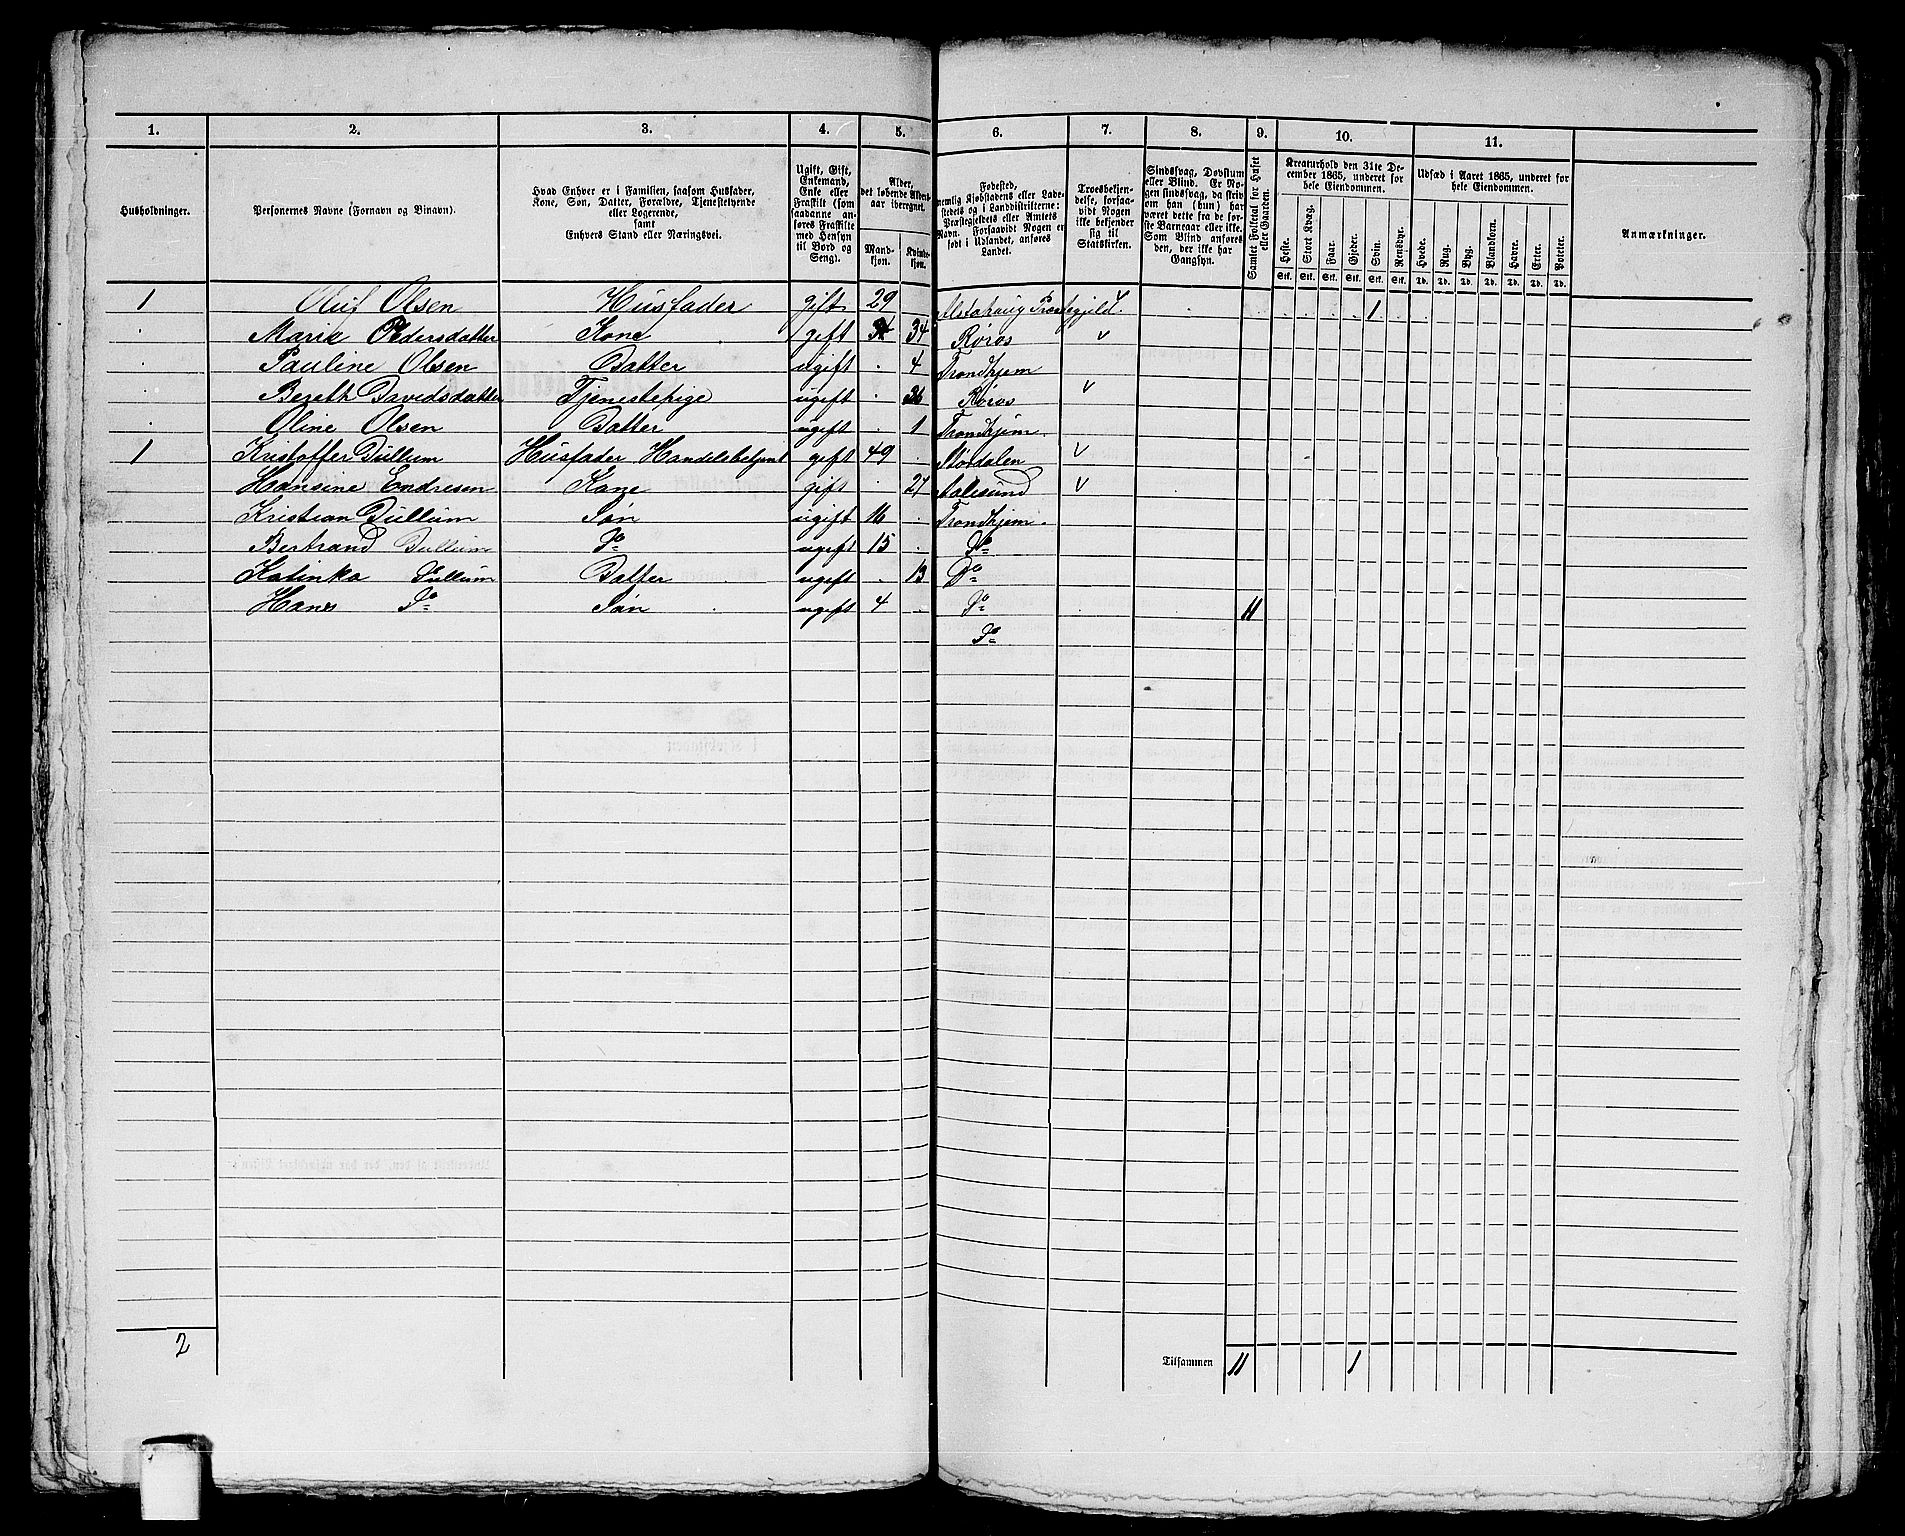 1. 2. 3. 4. 5. 6. 7. 8. 9. 10. 11.
Husholdninger.
Personernes Navne (Fornavn og Binavn).
Hvad Enhver er i Familien, saasom Husfader,
Kone, Søn, Datter, Forældre, Tjenestetyende
eller Logerende,
samt
Enhvers Stand eller Næringsvei.
Ugift, Gift,
Enkemand,
Enke eller
Fraskilt (som
saadanne an-
føres Fraskilte
med Hensyn
til Bord og
Seng).
Alder,
det løbende Alders-
aar iberegnet.
Mand-
kjøn.
Kvinde-
kjøn.
Fødested,
nemlig Kjøbstadens eller Lade-
stedets og i Landdistrikterne:
Præstegjeldets eller Amtets
Navn. Forsaavidt Nogen er
født i Udlandet, anføres
Landet.
Troesbekjen-
delse, forsaa-
vidt Nogen
ikke bekjender
sig til
Statskirken.
Sindssvag, Døvstum
eller Blind. Er No-
gen sindssvag, da skriv
om han (hun) har
været dette fra de før-
ste Barneaar eller ikke.
Som Blind anføres
den, der ikke har
Gangsyn.
Samlet Folketal for Huset
eller Gaarden.
Kreaturhold den 31te De-
cember 1865, underet for
hele Eiendommen.
Heste. Stort Kvæg. Faar. Gjeder. Svin. Rensdyr.
Stk. Stk. Stk. Stk. Stk. Stk.
Udsæd i Aaret 1865, underet for
hele Eiendommen.
Hvede. Rug. Byg. Blandkorn. Havre. Erter. Poteter.
Td. Td. Td. Td. Td. Td. Td.
Anmærkninger.
1 Oluf Olsen Husfader gift 29 Alstahaug Præstegjeld. 1
Marie Pedersdatter Kone gift 34 Røros
Pauline Olsen Datter ugift 4 Trondhjem
Bereth Davidsdatter Tjenestepige ugift 36 Røros
Oline Olsen Datter ugift 1 Trondhjem
1 Kristoffer Dullum Husfader Handelsbetjent gift 49 Størdalen
Hansine Endresen Kone gift Aalesund
Kristian Dullum Søn ugift 16 Trondhjem
Bertrand Dullum Do ugift 15 Do
Katinka Dullum Datter ugift 13 Do
Hans Do Søn ugift 4 Do 11
Do
2 Tilsammen 11 1